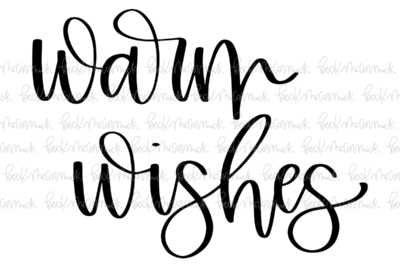 warm
wishes